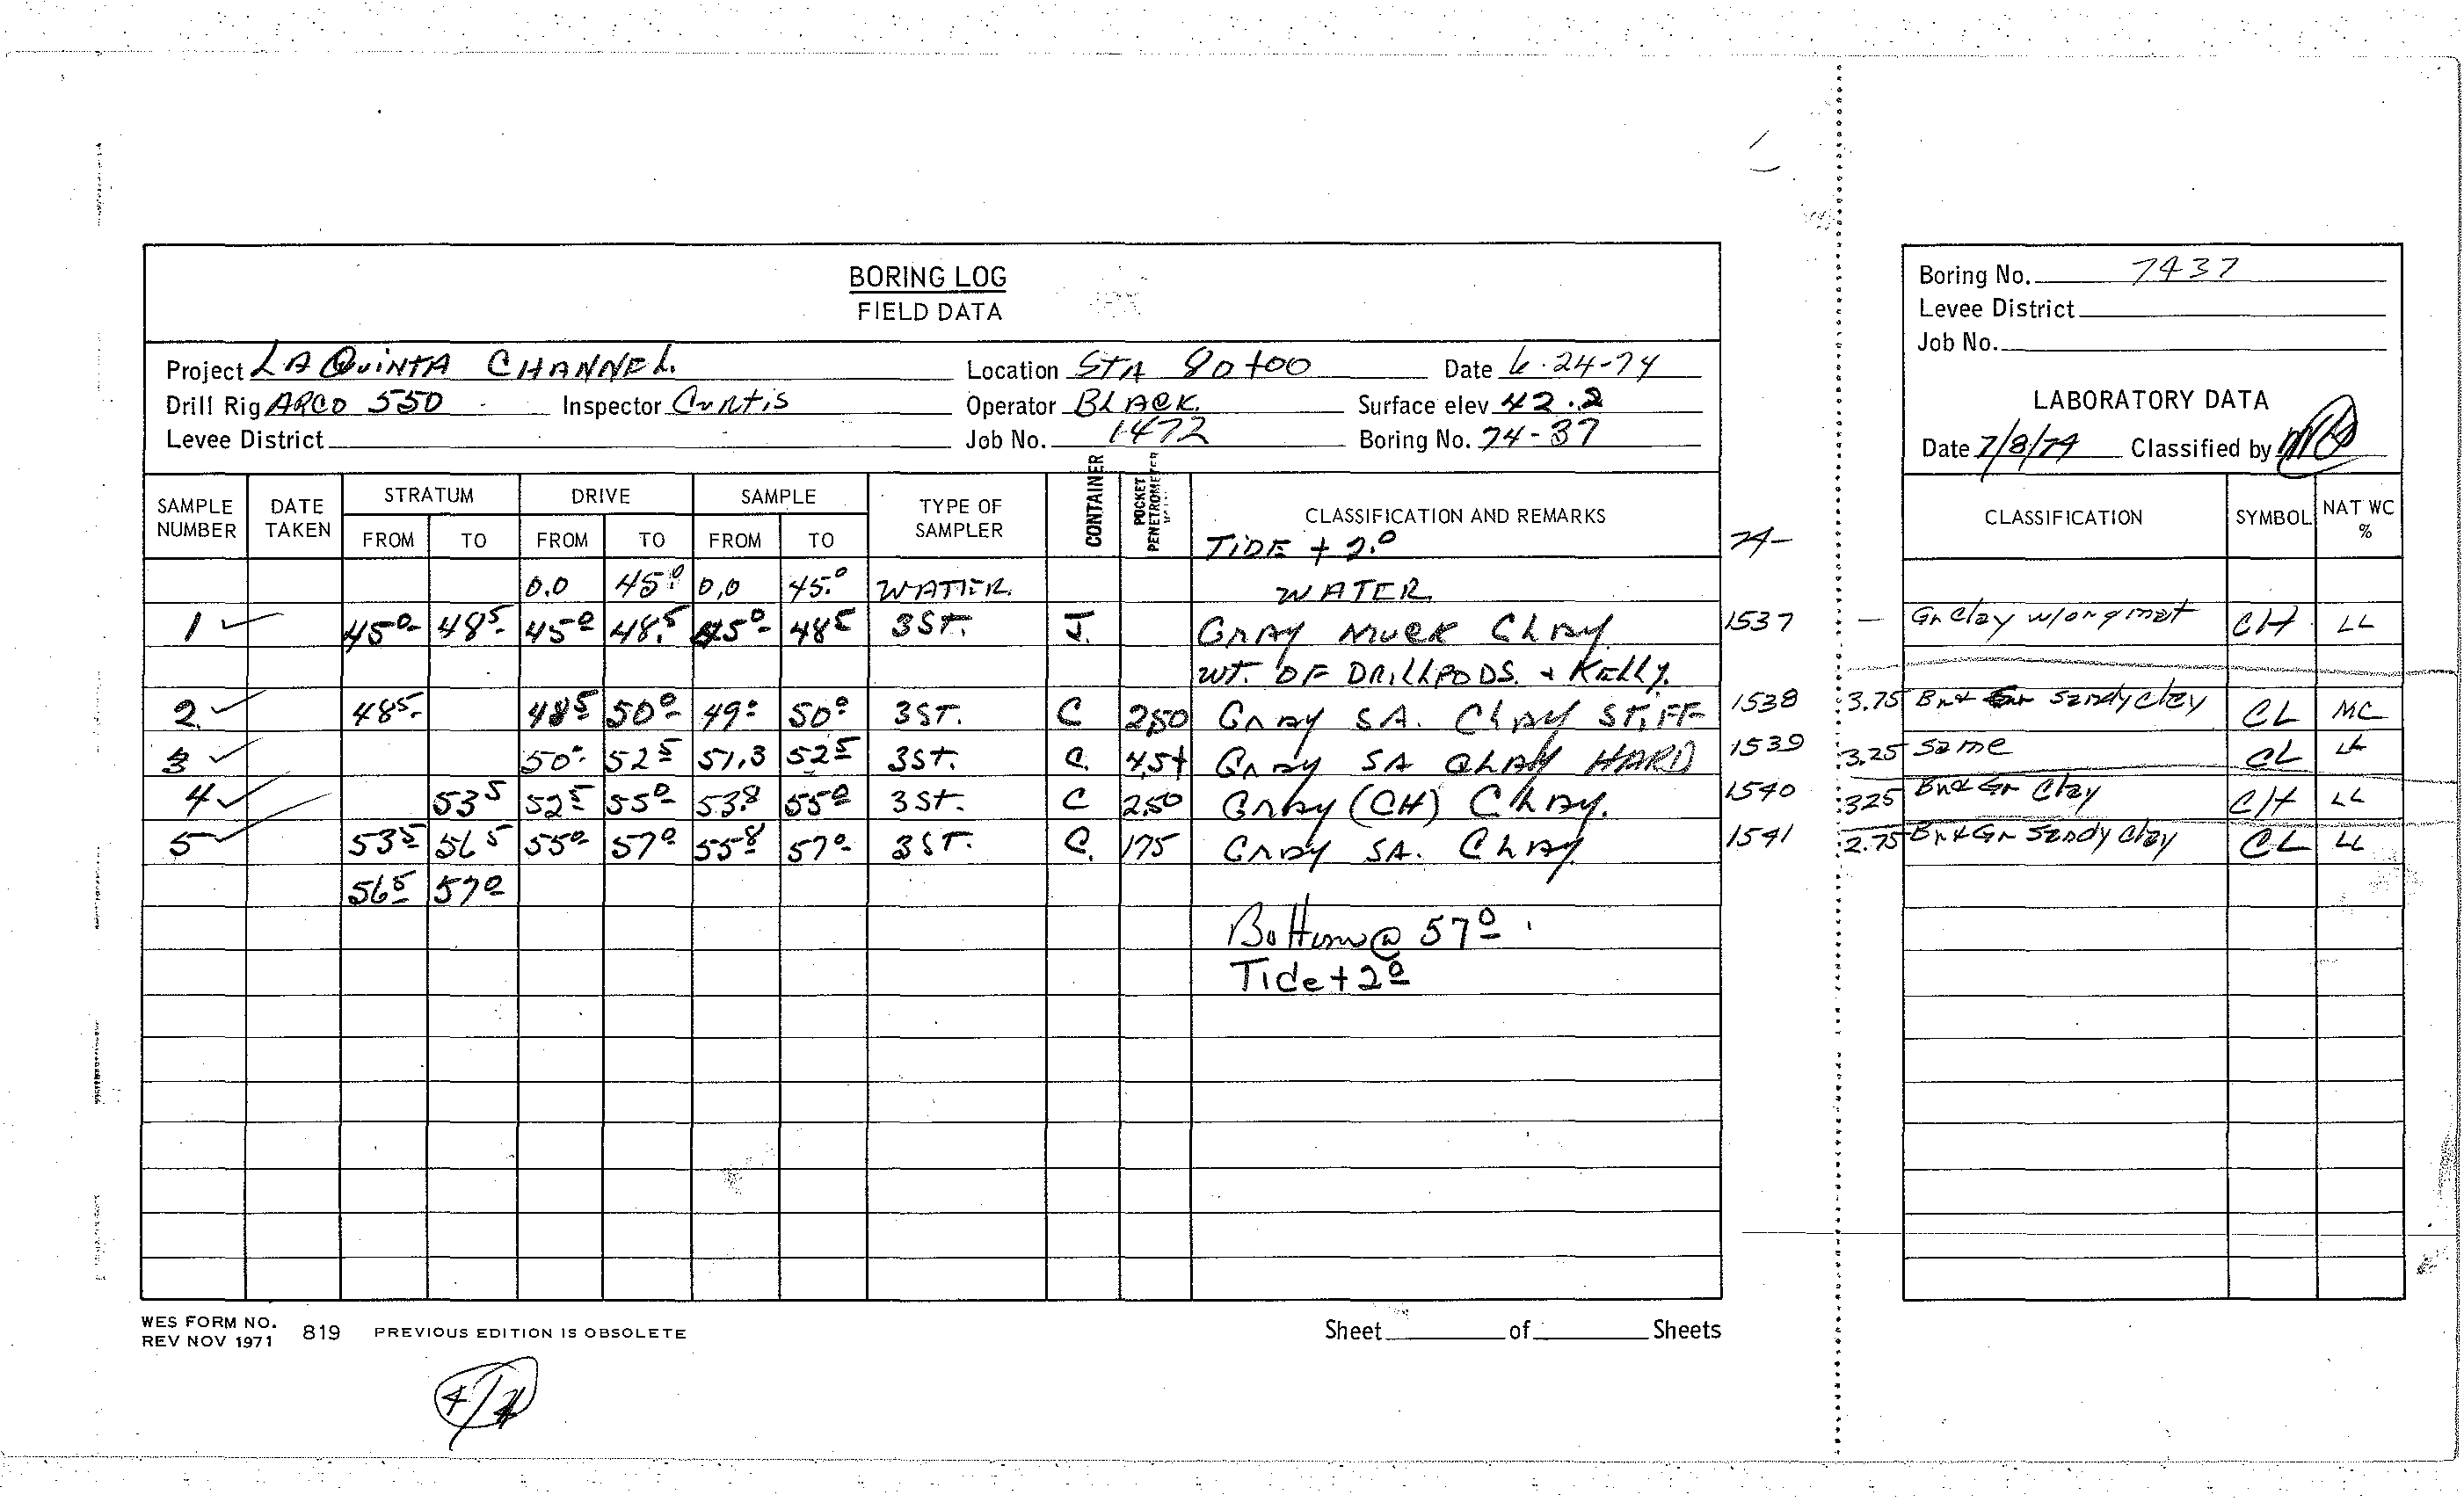 BORING LOG
FIELD DATA
Project LA QUINTA CHANNEL. Location STA 80+00 Date 6-24-74
Drill Rig ARCO 550 Inspector Curtis Operator BLACK. Surface elev 42.2
Levee District Job No. 1472 Boring No. 74-37
SAMPLE NUMBER DATE TAKEN STRATUM FROM TO DRIVE FROM TO SAMPLE FROM TO TYPE OF SAMPLER CONTAINER POCKET PENETROMETER CLASSIFICATION AND REMARKS
TIDE + 2.0 74-
0.0 45.0 0.0 45.0 WATER. WATER
1 45.0 48.5 45.0 48.5 45.0 48.5 3ST. J. GRAY MUCK CLAY 1537
WT. OF DRILLRODS. + KELLY.
2. 48.5 48.5 50.0 49.0 50.0 3ST. C 250 GRAY SA. CLAY STIFF 1538
3 50.0 52.5 51.3 52.5 3ST. C. 4.5+ GRAY SA CLAY HARD 1539
4 53.5 52.5 55.0 53.8 55.0 3ST. C 250 GRAY (CH) CLAY. 1540
5 53.5 56.5 55.0 57.0 55.8 57.0 3ST. C. 175 GRAY SA. CLAY 1541
56.5 57.0
Bottom @ 57.0
Tide + 2.0
WES FORM NO. 819 PREVIOUS EDITION IS OBSOLETE Sheet of Sheets
REV NOV 1971
4/4
Boring No. 7437
Levee District
Job No.
LABORATORY DATA
Date 7/8/74 Classified by
CLASSIFICATION SYMBOL NAT WC %
- Gr Clay w/org mat CH LL
3.75 Br & Gr Sandy Clay CL MC
3.25 Same CL LL
325 Br & Gr Clay CH LL
2.75 Br & Gr Sandy Clay CL LL